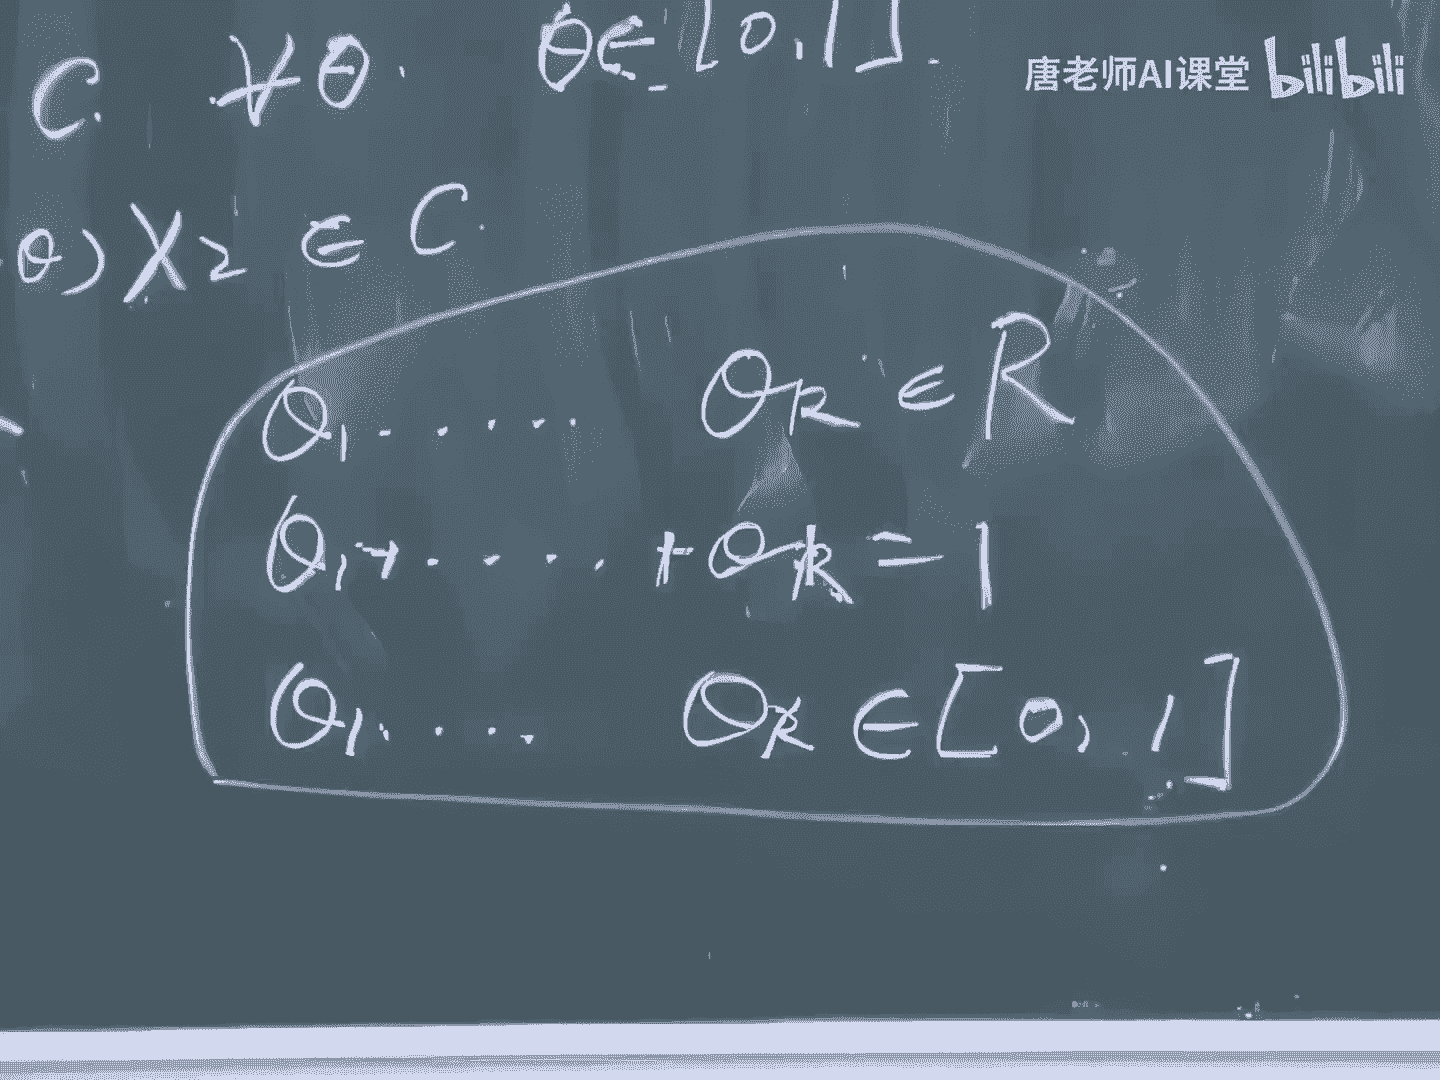 C. ∀θ. θ∈[0,1].
唐老师AI课堂 bilibili
θ)X₂ ∈ C.
θ₁..... θₖ ∈ R
θ₁+.....+θₖ=1
θ₁.... θₖ∈[0,1]